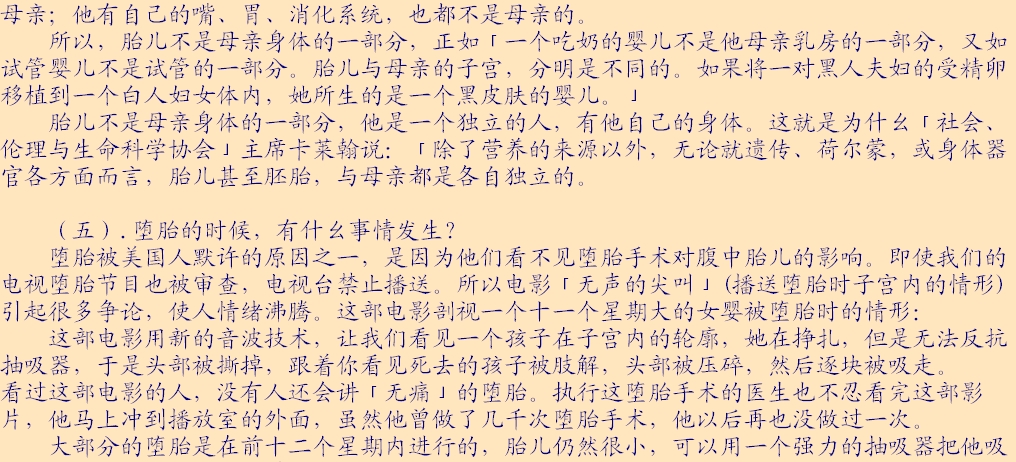 母亲；他有自己的嘴、胃、消化系统，也都不是母亲的。
所以，胎儿不是母亲身体的一部分，正如「一个吃奶的婴儿不是他母亲乳房的一部分，又如
试管婴儿不是试管的一部分。胎儿与母亲的子宫，分明是不同的。如果将一对黑人夫妇的受精卵
移植到一个白人妇女体内，她所生的是一个黑皮肤的婴儿。」
胎儿不是母亲身体的一部分，他是一个独立的人，有他自己的身体。这就是为什么「社会、
伦理与生命科学协会」主席卡莱翰说：「除了营养的来源以外，无论就遗传、荷尔蒙，或身体器
官各方面而言，胎儿甚至胚胎，与母亲都是各自独立的。
（五）.堕胎的时候，有什么事情发生？
堕胎被美国人默许的原因之一，是因为他们看不见堕胎手术对腹中胎儿的影响。即使我们的
电视堕胎节目也被审查，电视台禁止播送。所以电影「无声的尖叫」(播送堕胎时子宫内的情形)
引起很多争论，使人情绪沸腾。这部电影剖视一个十一个星期大的女婴被堕胎时的情形：
这部电影用新的音波技术，让我们看见一个孩子在子宫内的轮廓，她在挣扎，但是无法反抗
抽吸器，于是头部被撕掉，跟着你看见死去的孩子被肢解，头部被压碎，然后逐块被吸走。
看过这部电影的人，没有人还会讲「无痛」的堕胎。执行这堕胎手术的医生也不忍看完这部影
片，他马上冲到播放室的外面，虽然他曾做了几千次堕胎手术，他以后再也没做过一次。
大部分的堕胎是在前十二个星期内进行的，胎儿仍然很小，可以用一个强力的抽吸器把他吸